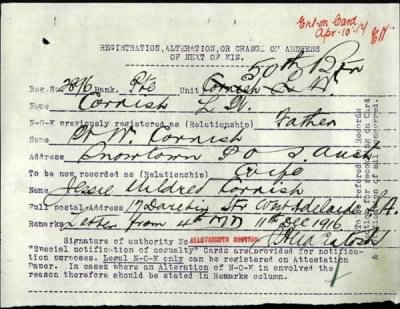 Ent on Card
Apr. 10. 17
REGISTRATION, ALTERATION, OR CHANGE OF ADDRESS
OF NEXT OF KIN.
50th Btn
Reg. No. 2876 Rank. Pte Unit
Name Cornish L W.
N-O-K previously registered as (Relationship) Father
W. Cornish
Address Snowtown P O S. Aust
To be now recorded as (Relationship) Wife
Name Jessie Mildred Cornish
Full postal Address 17 Darebin St West Adelaide S.A.
Remarks Letter from 4th M D 11th Dec 1916
Signature of authority No ALLOTMENTS SECTION
"Special notification of casualty" Cards are provided for notification
purposes. Legal N-O-K only can be registered on Attestation
Paper. In cases where an Alteration of N-O-K in involved the
reason therefore should be stated in Remarks column.
To be referred to Records
for notation on Card
& information of all concerned.